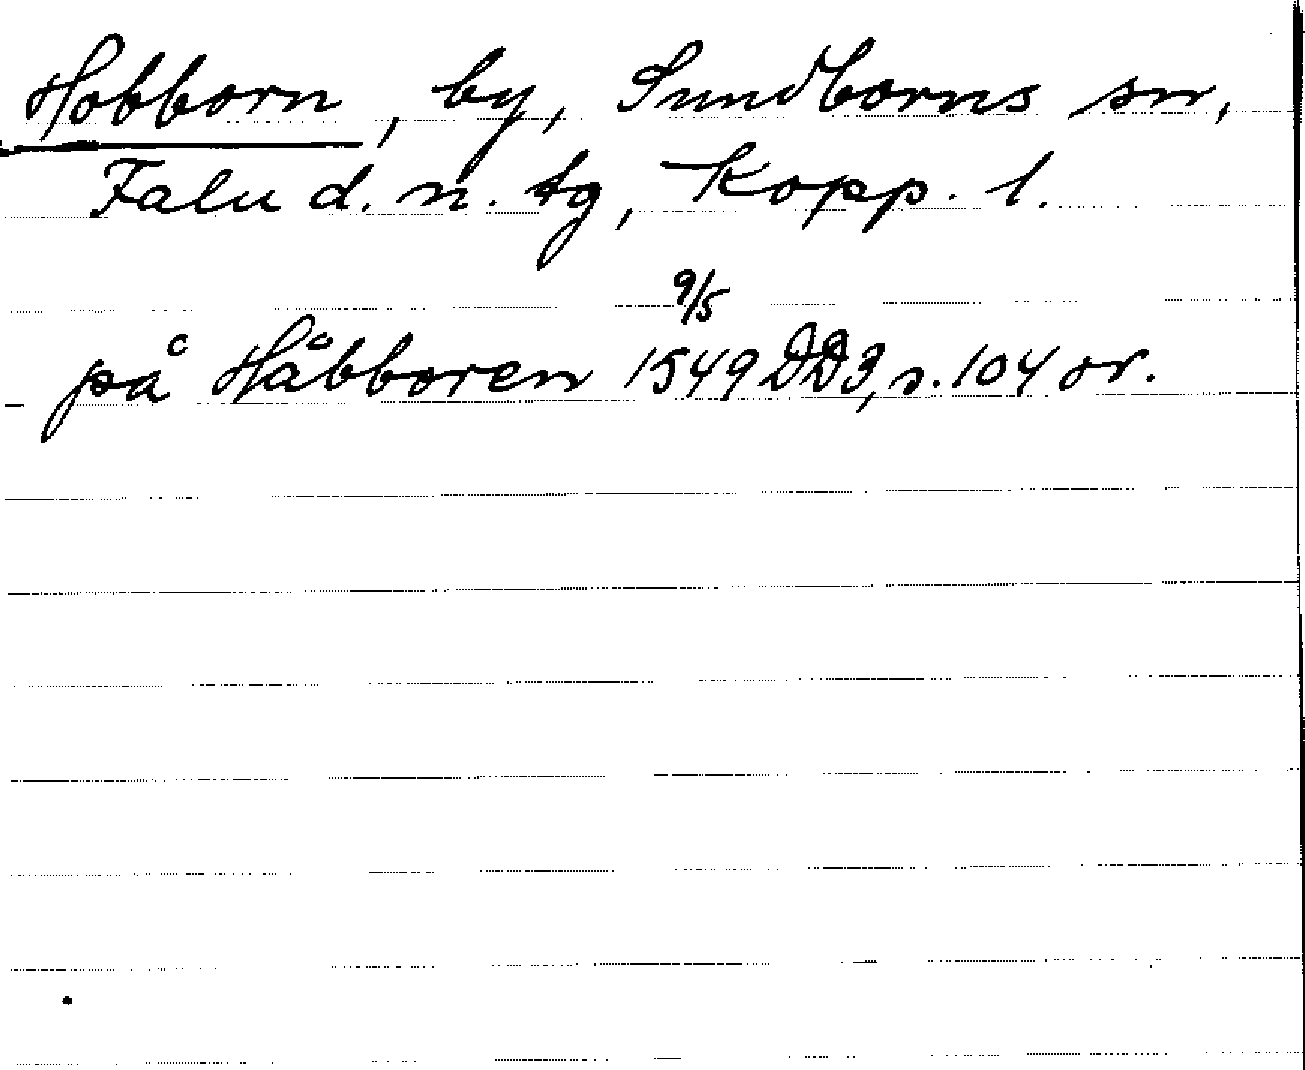 Hobborn, by, Sundborns sn,
Falu d. n. tg, Kopp. l.
9/5
på Håbboren 1549 DD3, s. 104 or.